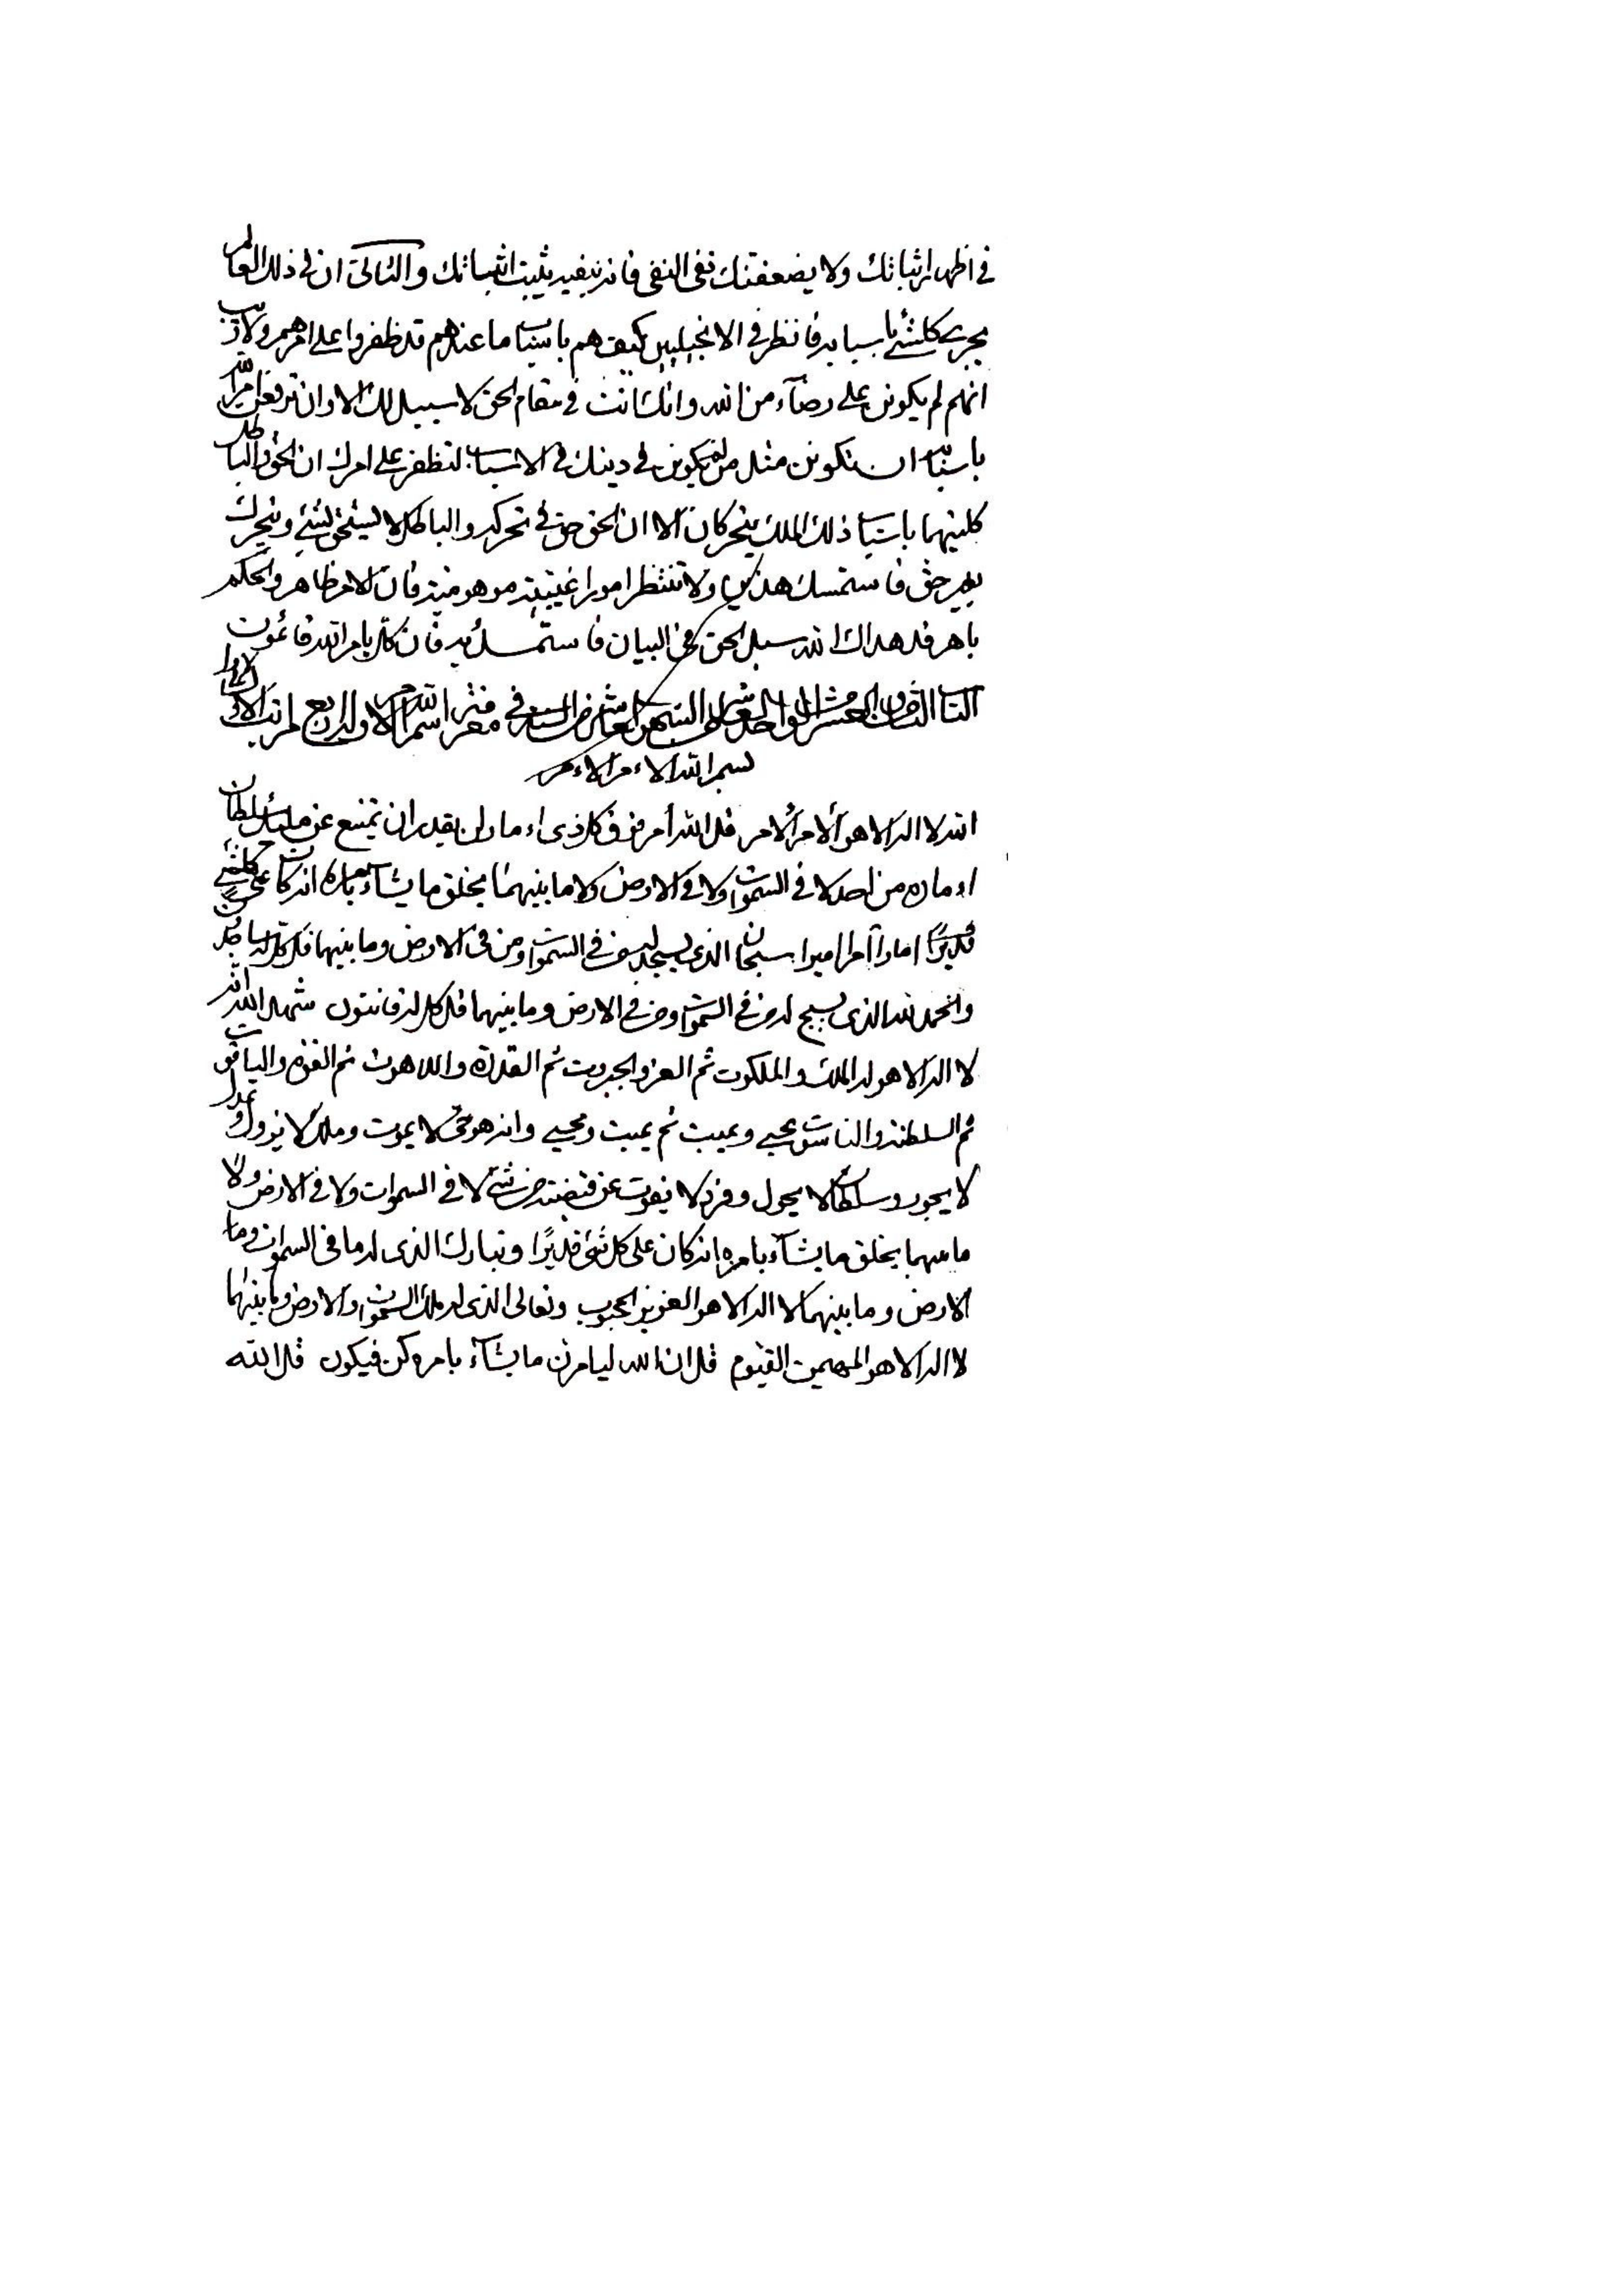 في اظهار اثباتك ولا يضعفنك نفي النفي فانه بنفيه يثبت اثباتك والثالث ان في ذلك العالم
يجري كلشئ باسبابه فانظر في الانجيليين كيف هم باسباب ما عندهم قد ظفروا على امرهم ولا ريب
انهم لم يكونن على رضاء من الله وانك انت في مقام الحق لا سبيل لك الا وان ترفعن امر الله
باسبابه ان تكونن مثل من لم يكونن في دينك في الاسباب لتظفرن على امرك ان الحق والباطل
كلتيهما باسباب ذلك الملك يتحركان الا ان الحق حق في تحركه والباطل لا يستحق لشئ ويتحرك
بغير حق فاستمسك هذين ولا تنتظر امورا غيبية موهومية فان الامر ظاهر والحكم
باهر قد هداك الله سبل الحق في البيان فاستمسك به فان كل بامر الله قائمون
بسم الله الاءمر الاءمر
الله لا اله الا هو الأمر الأمر قل الله أمر فوق كل ذي اءمار لن يقدر ان يمتنع عن مليك سلطان
اءماره من احد لا في السموات ولا في الارض ولا ما بينهما يخلق ما يشاء بامره انه كان على كلشئ
قديرا امارا آمرا اميرا سبحان الذي يسجد له من في السموات ومن في الارض وما بينهما قل كل له ساجدون
والحمد لله الذي يسبح له من في السموات ومن في الارض وما بينهما قل كل له قانتون شهد الله انه
لا اله الا هو له الملك والملكوت ثم العز والجبروت ثم القدرة واللاهوت ثم القوة والياقوت
ثم السلطنة والناسوت يحيي ويميت ثم يميت ويحيي وانه هو حي لا يموت وملك لا يزول وعدل
لا يجور وسلطان لا يحول وفرد لا يفوت عن قبضته من شئ لا في السموات ولا في الارض ولا
ما بينهما يخلق ما يشاء بامره انه كان على كل شئ قديرا وتبارك الذي له ما في السموات وما
الارض وما بينهما لا اله الا هو العزيز المحبوب وتعالى الذي له ملك السموات والارض وما بينهما
لا اله الا هو المهيمن القيوم قل ان الله ليامرن ما يشاء بامره كن فيكون قل الله